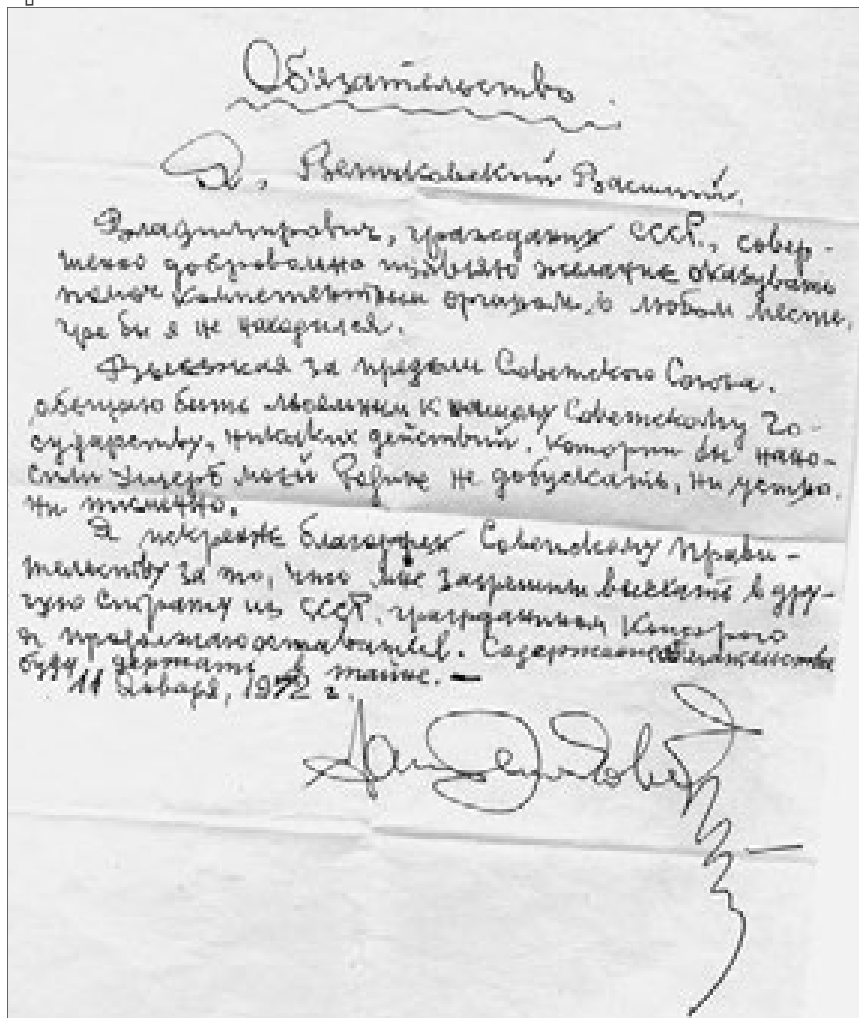 Обязательство
Я, Величковский Василий
Владимирович, гражданин СССР, совер-
шено добровально изъявляю желание оказувать
помоч компетентним органам, в любом месте,
где бы я не находился.
Выезжая за предели Советского Союза,
обещаю быть лояльним к нашему Советскому Го-
сударству, никаких действий, котории бы нано-
сили ущерб моей Родине не допускать, ни устно,
ни письмено.
Я искренне благодарен Советскому прави-
тельству за то, что мне разрешили выехать в дру-
гую страну из СССР, гражданином которого
я продолжаю оставаться. Содержание
буду держать в тайне. —
11 Января, 1972 г.